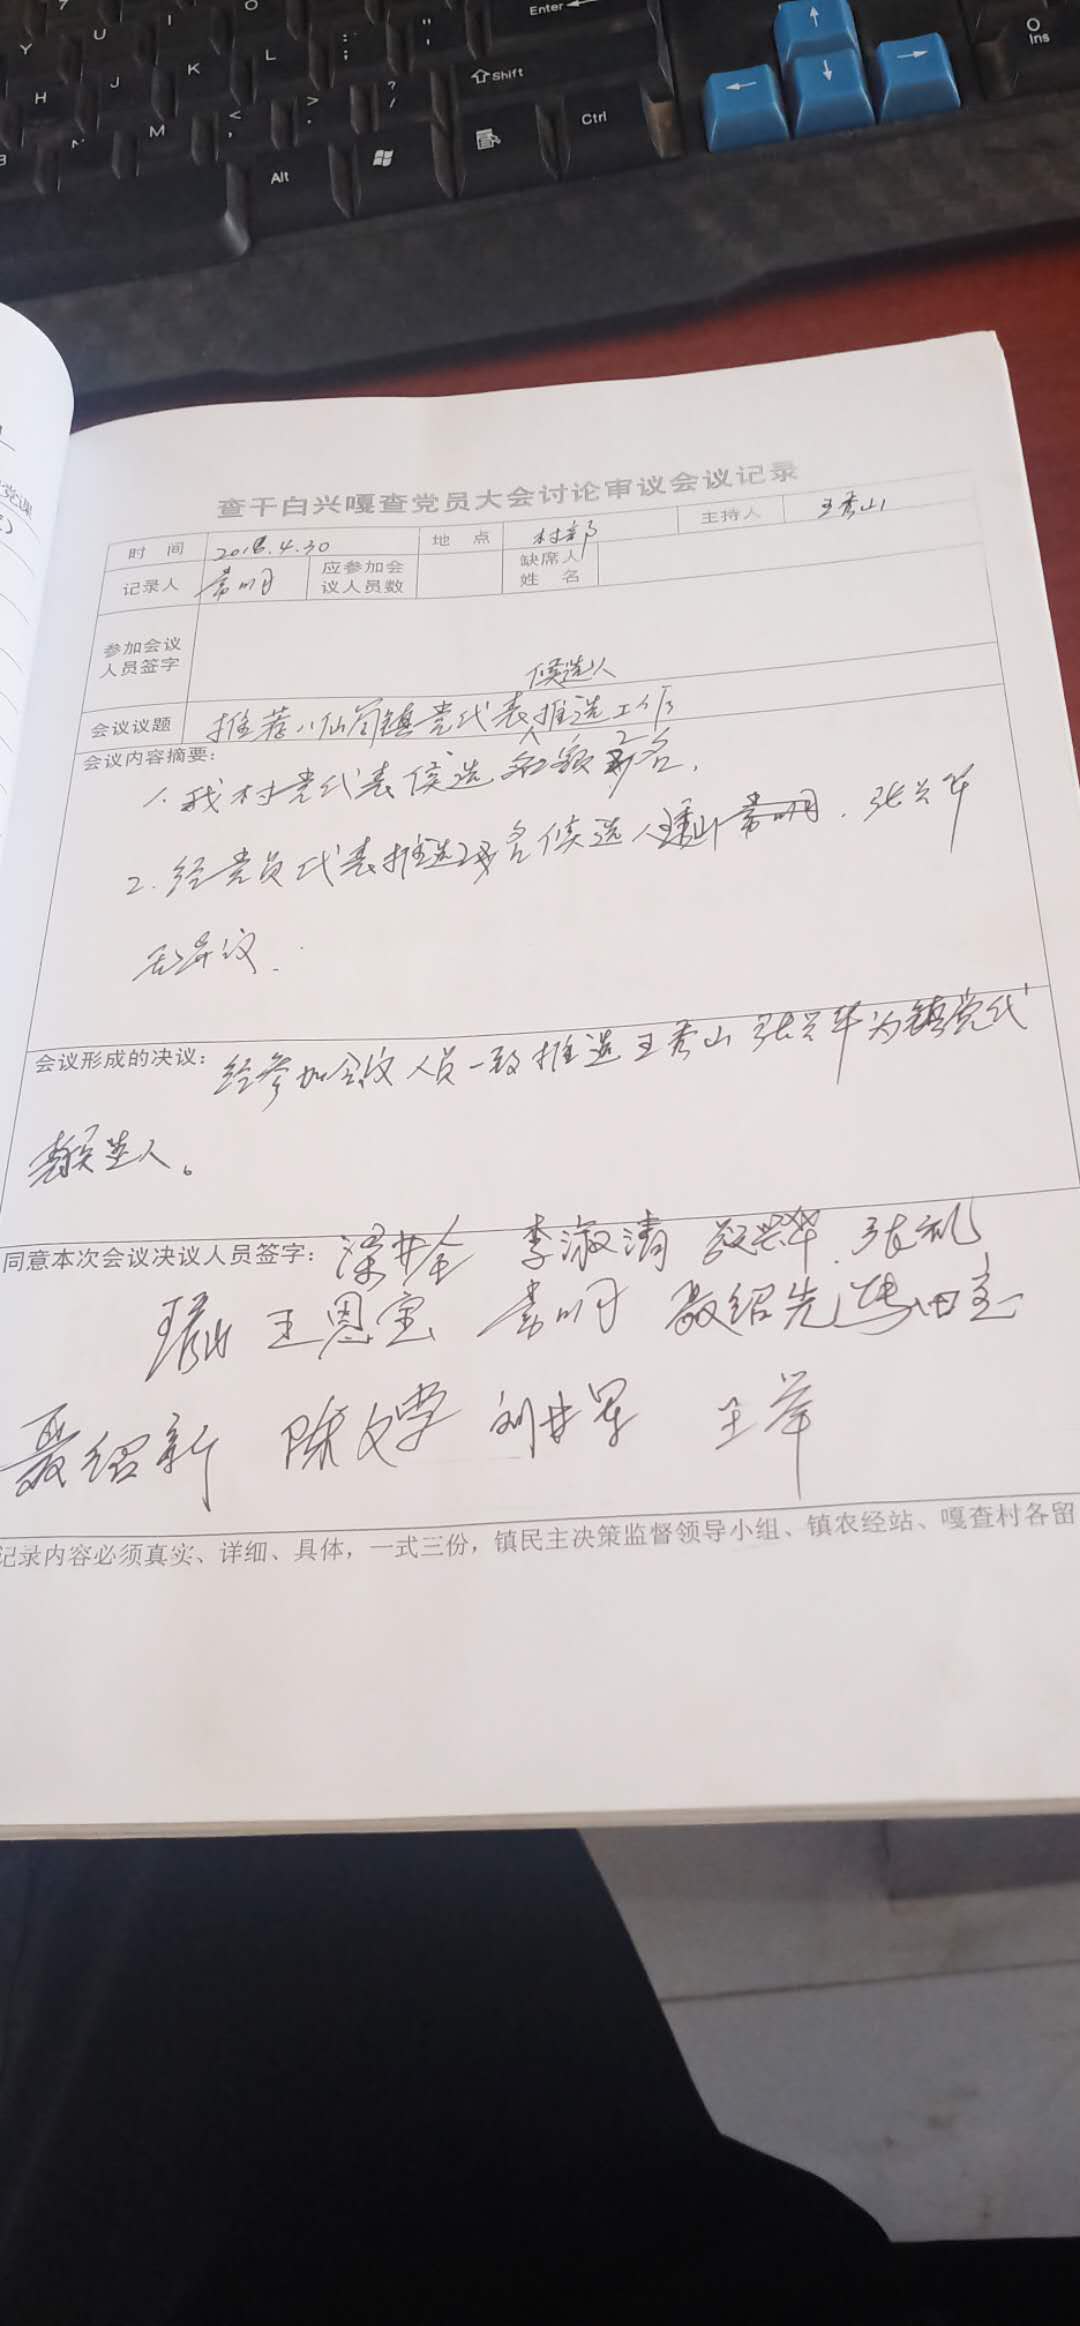 Y U I O Enter
H J K L : ; " ' Shift
M < , > . ? / Ctrl
Alt
Ins
党课
查干白兴嘎查党员大会讨论审议会议记录
时 间 2018.4.30 地 点 村部 主持人 王秀山
记录人 常明月 应参加会议人员数 缺席人姓 名
参加会议
人员签字
候选人
会议议题 推荐八仙筒镇党代表推选工作
会议内容摘要：
1. 我村党代表候选人名额2名.
2. 经党员代表推选2名候选人王秀山 常明月. 张兴华
无异议.
会议形成的决议： 经参加会议人员一致推选王秀山 张兴华为镇党代
表候选人。
同意本次会议决议人员签字： 梁井全 李淑清 张兴华 张礼
王秀山 王恩宝 常明月 聂绍先
聂绍新 陈文学 刘井军 王举
记录内容必须真实、详细、具体，一式三份，镇民主决策监督领导小组、镇农经站、嘎查村各留